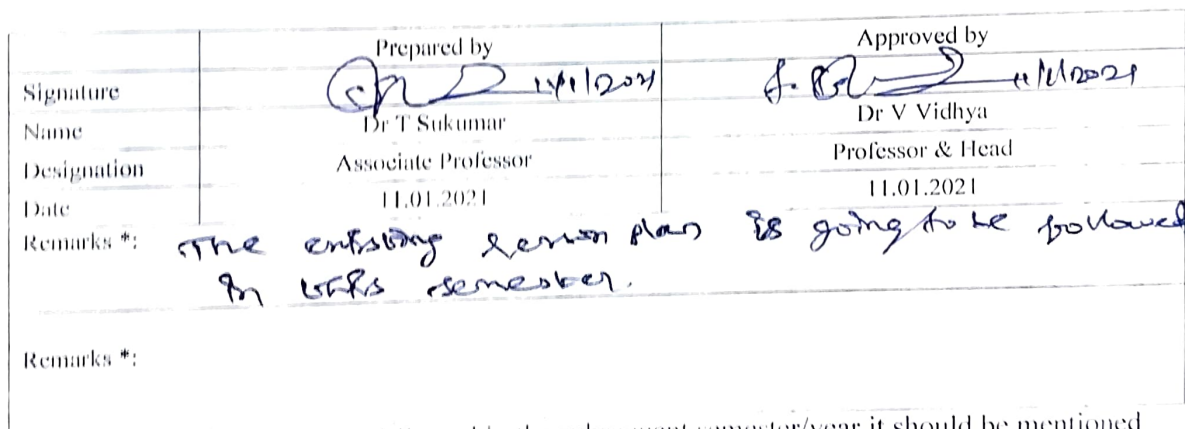 Prepared by Approved by
Signature 11/1/2021 11/1/2021
Name Dr T Sukumar Dr V Vidhya
Designation Associate Professor Professor & Head
Date 11.01.2021 11.01.2021
Remarks *: The existing lesson plan is going to be followed
in this semester.
Remarks *:
semester/year it should be mentioned